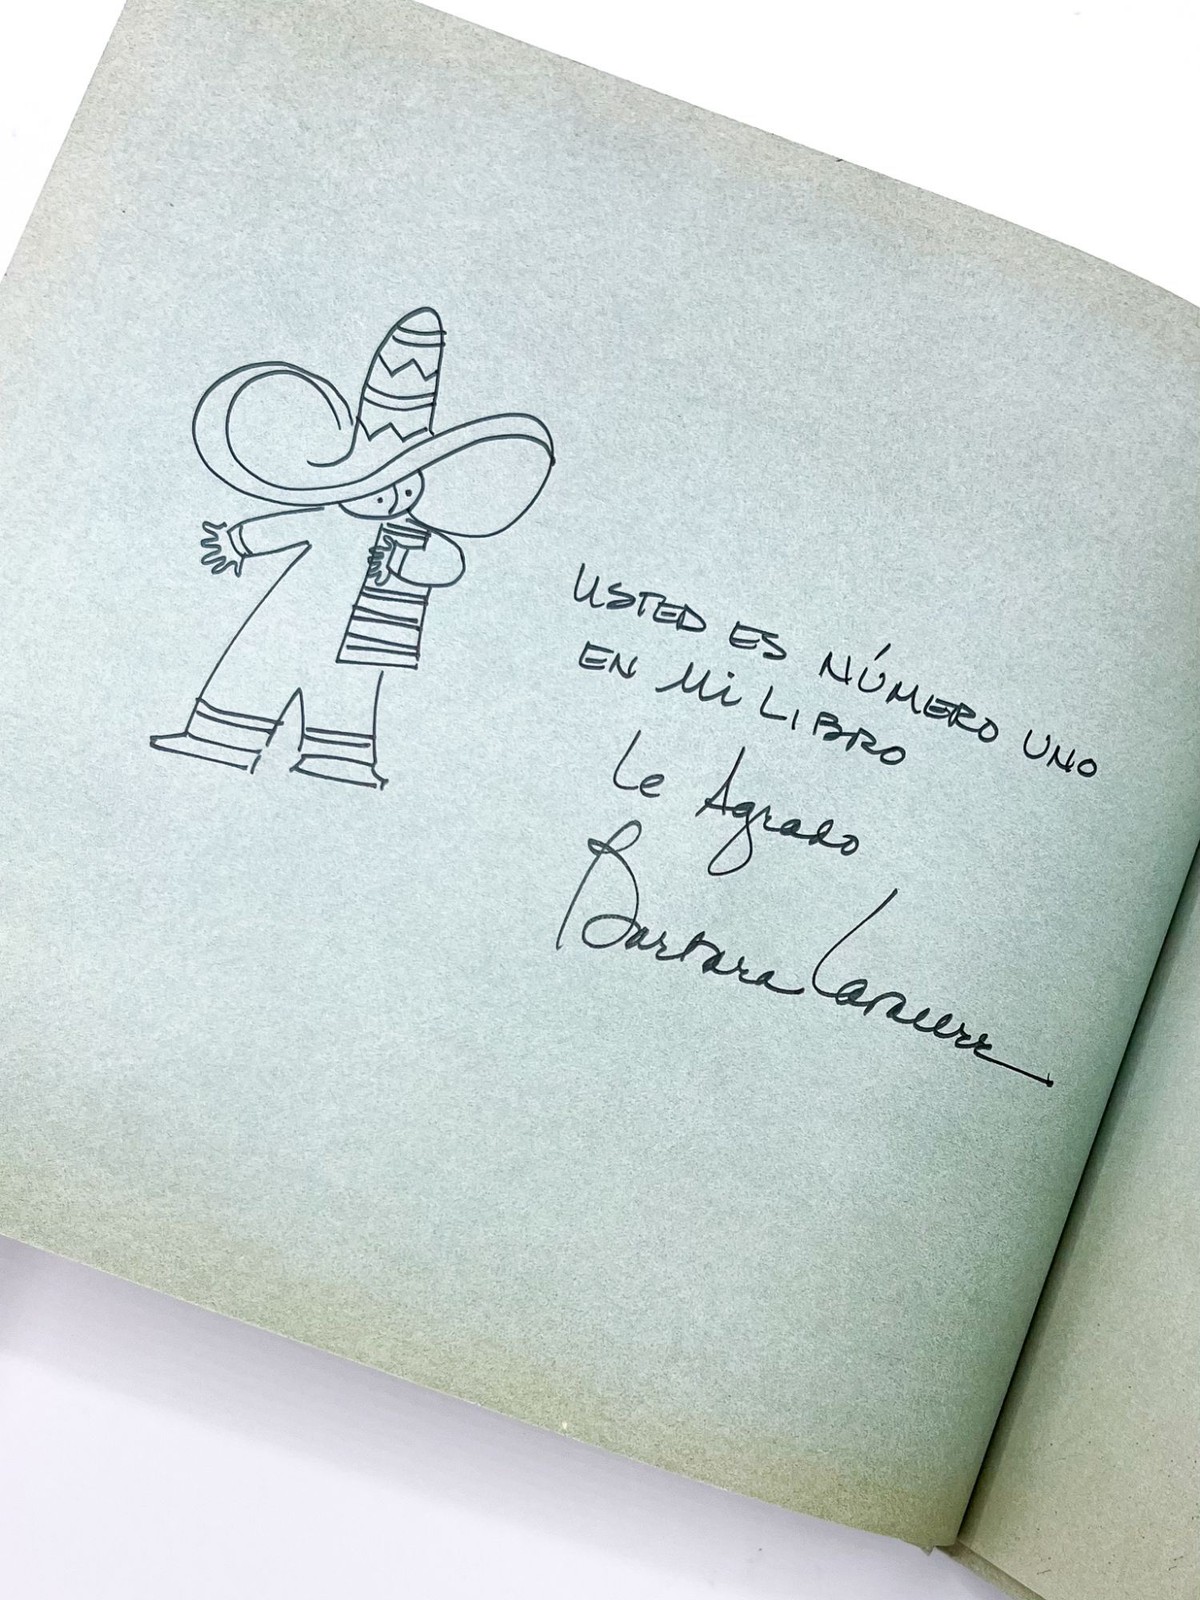 USTED ES NÚMERO UNO
EN Mi LIBRO
Le Agrado
Barbara